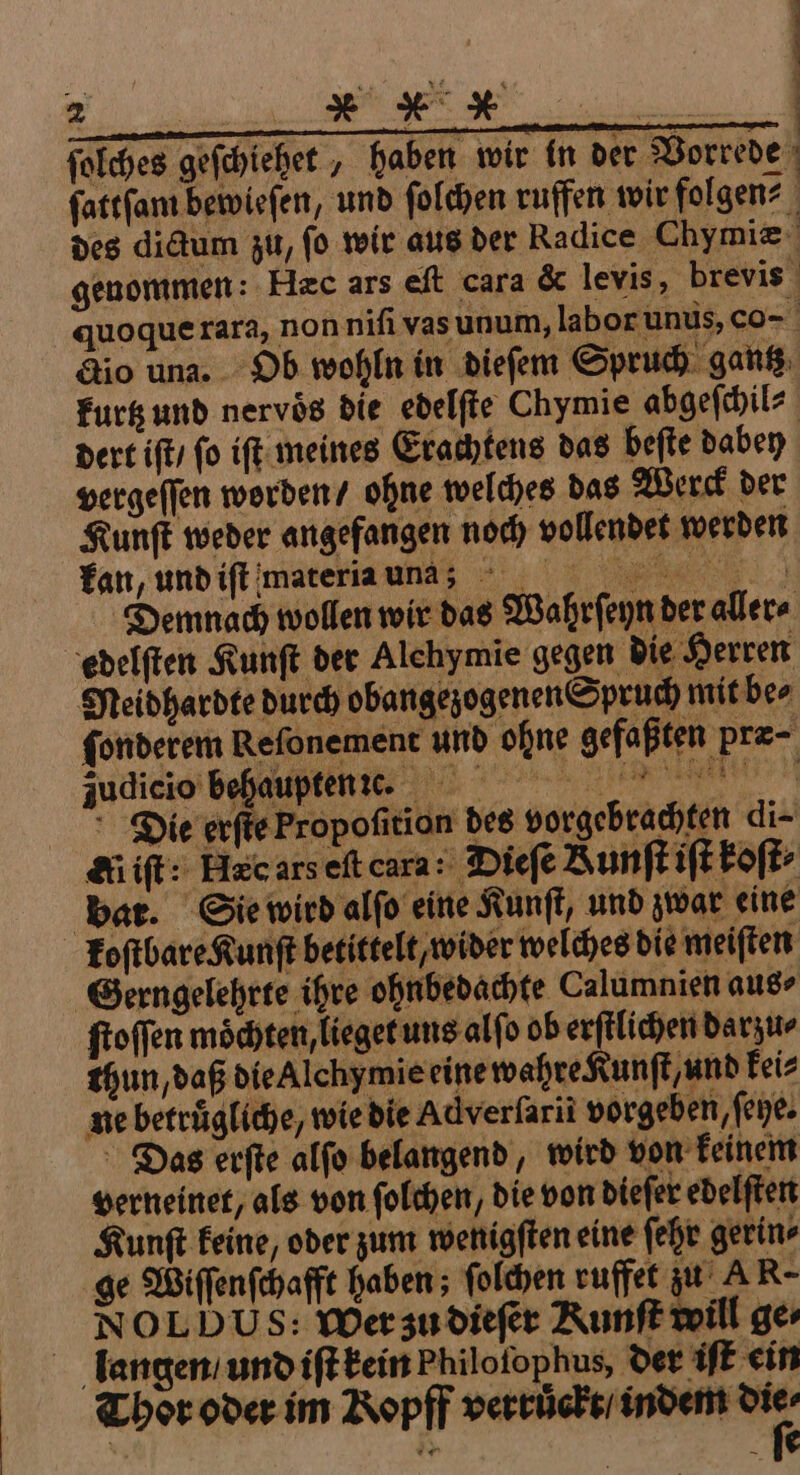 2 * * *
ſolches geſchiehet, haben wir in der Vorrede
ſattſam bewieſen, und ſolchen ruffen wir folgen⸗
des dictum zu, ſo wir aus der Radice Chymiæ
genommen: Hæc ars eſt cara & levis, brevis
quoque rara, non niſi vas unum, labor unus, co-
ctio una. Ob wohln in dieſem Spruch gantz
kurtz und nervoͤs die edelſte Chymie abgeſchil⸗
dert iſt/ ſo iſt meines Erachtens das beſte dabey
vergeſſen worden/ ohne welches das Werck der
Kunſt weder angefangen noch vollendet werden
kan, und iſt materia una;
Demnach wollen wir das Wahrſeyn der aller⸗
edelſten Kunſt der Alchymie gegen die Herren
Neidhardte durch obangezogenen Spruch mit be⸗
ſonderem Reſonement und ohne gefaßten præ-
judicio behaupten ꝛc.
Die erſte Propoſition des vorgebrachten di-
cti iſt: Hæc ars eſt cara: Dieſe Kunſt iſt koſt⸗
bar. Sie wird alſo eine Kunſt, und zwar eine
koſtbare Kunſt betittelt, wider welches die meiſten
Gerngelehrte ihre ohnbedachte Calumnien aus⸗
ſtoſſen moͤchten, lieget uns alſo ob erſtlichen darzu⸗
thun, daß die Alchymie eine wahre Kunſt, und kei⸗
ne betruͤgliche, wie die Adverſarii vorgeben, ſeye.
Das erſte alſo belangend, wird von keinem
verneinet, als von ſolchen, die von dieſer edelſten
Kunſt keine, oder zum wenigſten eine ſehr gerin⸗
ge Wiſſenſchafft haben; ſolchen ruffet zu AR-
NOLDUS: Wer zu dieſer Kunſt will ge⸗
langen/ und iſt kein Philoſophus, der iſt ein
Thor oder im Kopff verruͤckt/ indem die⸗
ſe